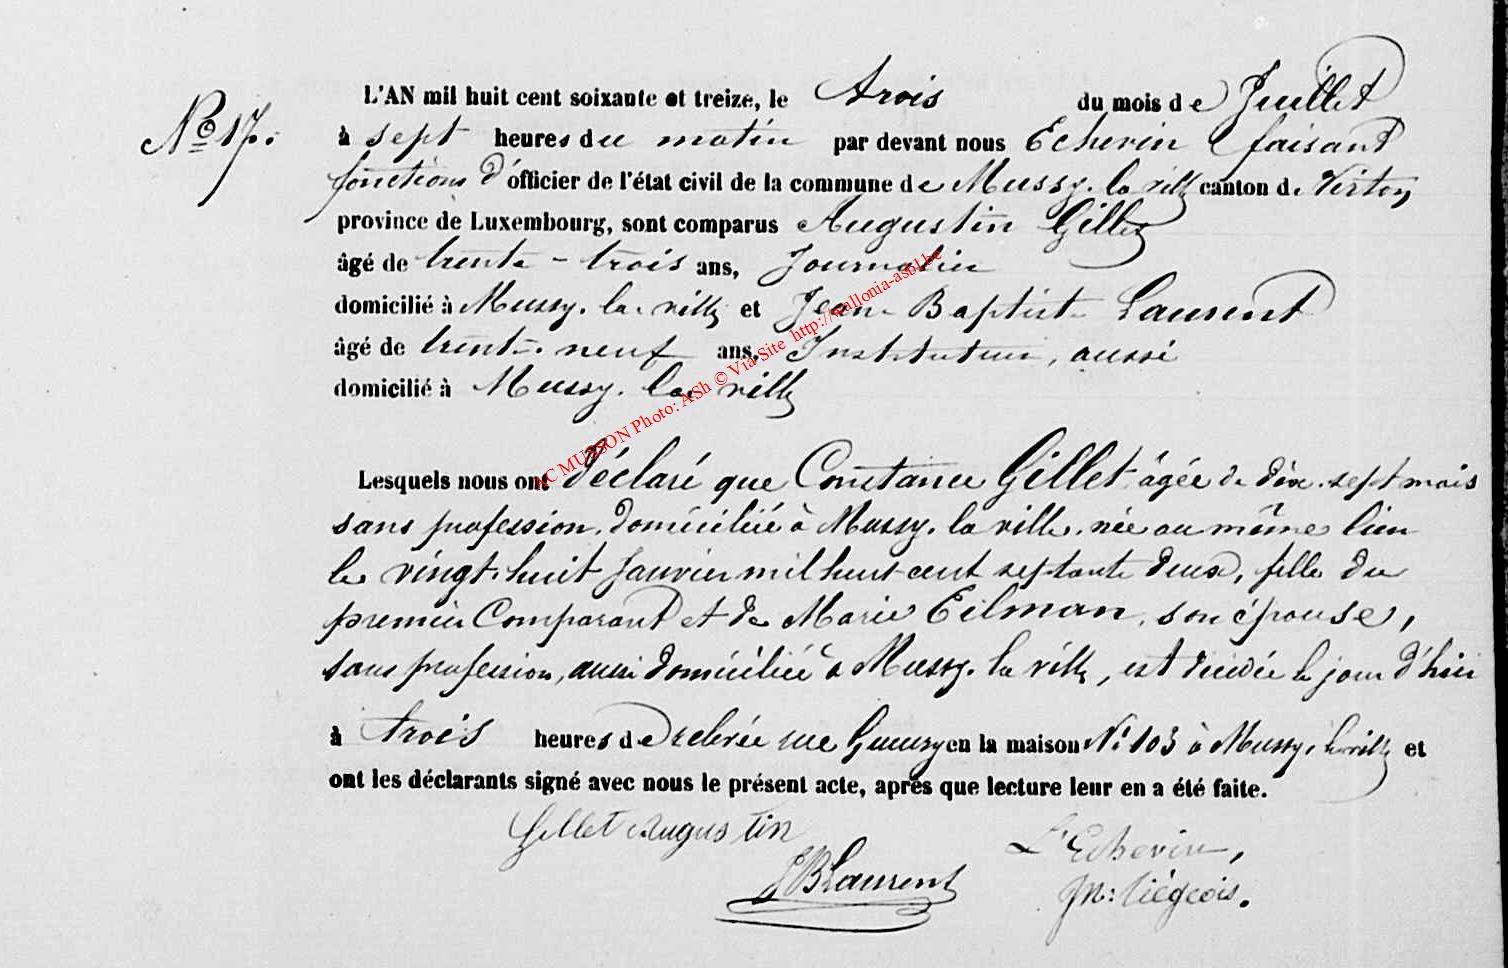 L'AN mil huit cent soixante et treize, le trois du mois de Juillet
No 17.
à sept heures du matin par devant nous Echevin faisant
fonctions d'officier de l'état civil de la commune de Mussy-la-ville canton de Virton,
province de Luxembourg, sont comparus Augustin Gillet
âgé de trente-trois ans, Journalier
domicilié à Mussy-la-ville et Jean-Baptiste Laurent
âgé de trente-neuf ans, Instituteur, aussi
domicilié à Mussy-la-ville
AC MUSSON Photo: ASh © Via Site http://wallonia-asbl.be
Lesquels nous ont déclaré que Constance Gillet âgée de dix-sept mois
sans profession, domiciliée à Mussy-la-ville, née au même lieu
le vingt-huit Janvier mil huit cent septante deux, fille du
premier Comparant et de Marie Eilman, son épouse,
sans profession, aussi domiciliée à Mussy-la-ville, est décédée le jour d'hier
à trois heures de relevée rue en la maison No 103 à Mussy-la-ville et
ont les déclarants signé avec nous le présent acte, après que lecture leur en a été faite.
Gillet Augustin
L'Echevin,
JBLaurent
Jn: Liégeois.